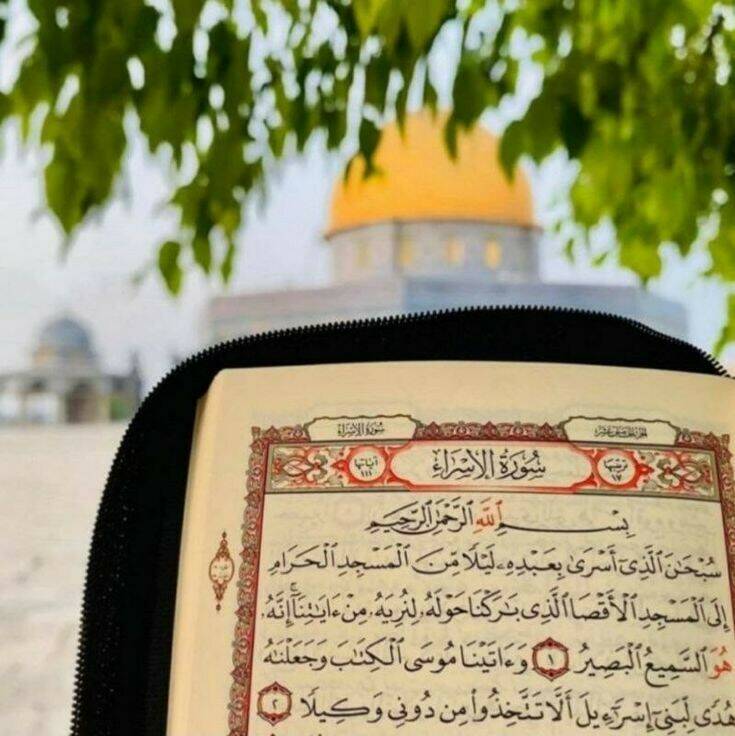 سُورَةُ الإِسْرَاءِ
الجزء الخامس عشر
ترتيبها ١٧
سُورَةُ الإِسْرَاءِ
آياتها ١١١
بِسْمِ ٱللَّهِ ٱلرَّحْمَٰنِ ٱلرَّحِيمِ
سُبْحَٰنَ ٱلَّذِىٓ أَسْرَىٰ بِعَبْدِهِۦ لَيْلًا مِّنَ ٱلْمَسْجِدِ ٱلْحَرَامِ
إِلَى ٱلْمَسْجِدِ ٱلْأَقْصَا ٱلَّذِى بَٰرَكْنَا حَوْلَهُۥ لِنُرِيَهُۥ مِنْ ءَايَٰتِنَآ ۚ إِنَّهُۥ
هُوَ ٱلسَّمِيعُ ٱلْبَصِيرُ ١ وَءَاتَيْنَا مُوسَى ٱلْكِتَٰبَ وَجَعَلْنَٰهُ
هُدًى لِّبَنِىٓ إِسْرَٰٓءِيلَ أَلَّا تَتَّخِذُوا۟ مِن دُونِى وَكِيلًا ٢